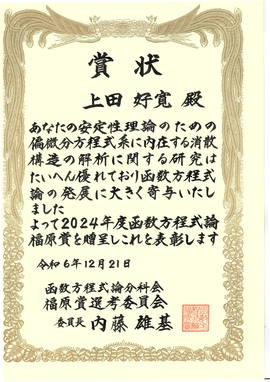 賞状
上田 好寛 殿
あなたの安定性理論のための
偏微分方程式系に内在する消散
構造の解析に関する研究は
たいへん優れており函数方程式
論の発展に大きく寄与いたし
ました
よって2024年度函数方程式論
福原賞を贈呈しこれを表彰します
令和6年12月21日
函数方程式論分科会
福原賞選考委員会
委員長 内藤 雄基